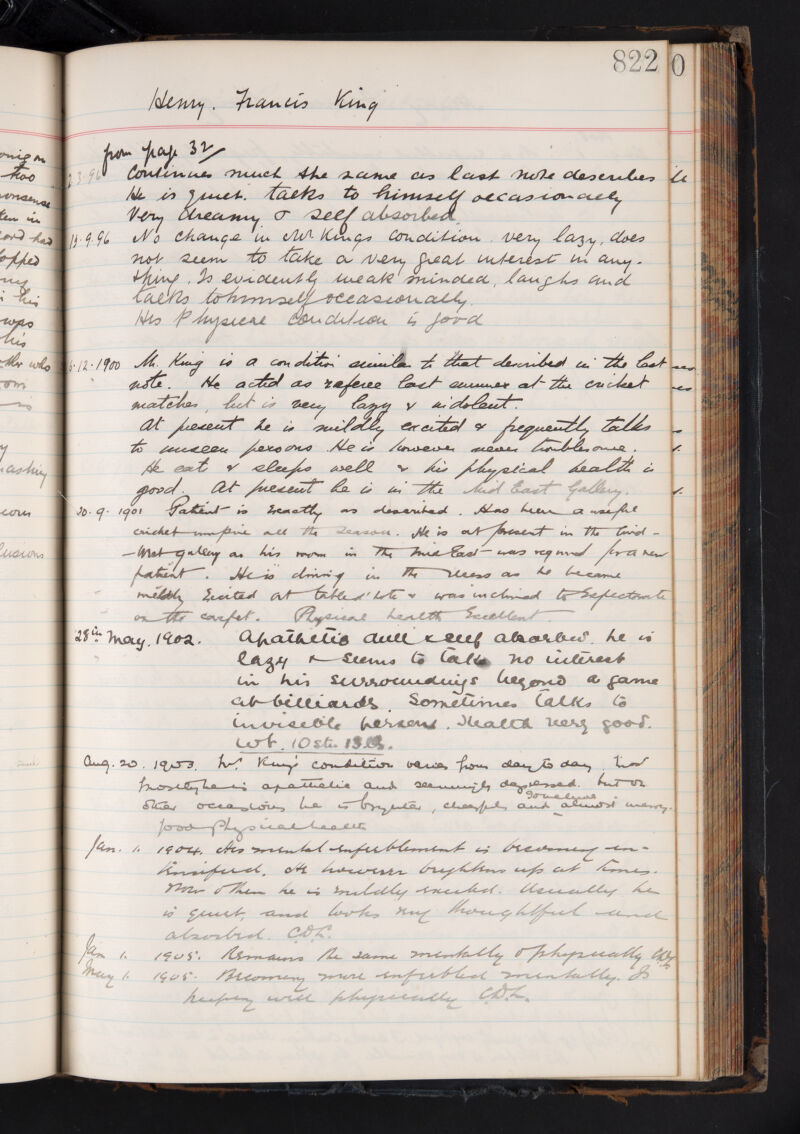 822
Henry. Francis King
from page 32
2.3.96 Continues much the same as last note describes
He is quiet. talks to himself occasionally
Very dreamy & self absorbed.
13.9.96 No change in Mr Kings condition. very lazy, does
not seem to take a very great interest in any-
thing. Is evidently weak minded, laughs and
talks to himself occasionally.
His Physical condition is good
6.12.1900 Mr. King is a condition similar to that described in the last
note. He acted as referee last summer at the cricket
matches, but is very lazy & indolent.
At present he is mildly excited & frequently talks
to unseen persons. He is however never troublesome.
He eats & sleeps well & his physical health is
good. At present he is in the Mid East Gallery.
20.9.1901 Patient is exactly as described. Has been a useful
cricket umpire all the season. He is at present in the
-West gallery as his room in the Mid East was required for a new
patient. He is dining in the Mess as he became
mildly excited at table d'hote & was inclined to expectorate
on the carpet. Physical health Excellent.
28th May. 1902. Apathetic dull & self absorbed. he is
lazy & seems to take no interest
in his surroundings beyond a game
at billiards. Sometimes talks to
invisible persons. Health very good.
Wt. 10st. 13lb.
Aug. 20. 1903. Mr. King's condition varies from day to day.
mostly he is apathetic and seemingly depressed. but on
other occasions he is brighter, cheerful and sometimes almost merry.
Good Physical health
Jan. 1. 1904. His mental enfeeblement is becoming in-
tensified. He however brightens up at times.
Now & then he is mildly excited. Usually he
is quiet, and looks very thoughtful and
absorbed. C.D.L.
Jan 1. 1905. Remains the same mentally & physically C.D.L.
May 1. 1905. Becoming more enfeebled mentally. Is
keeping well physically C.D.L.